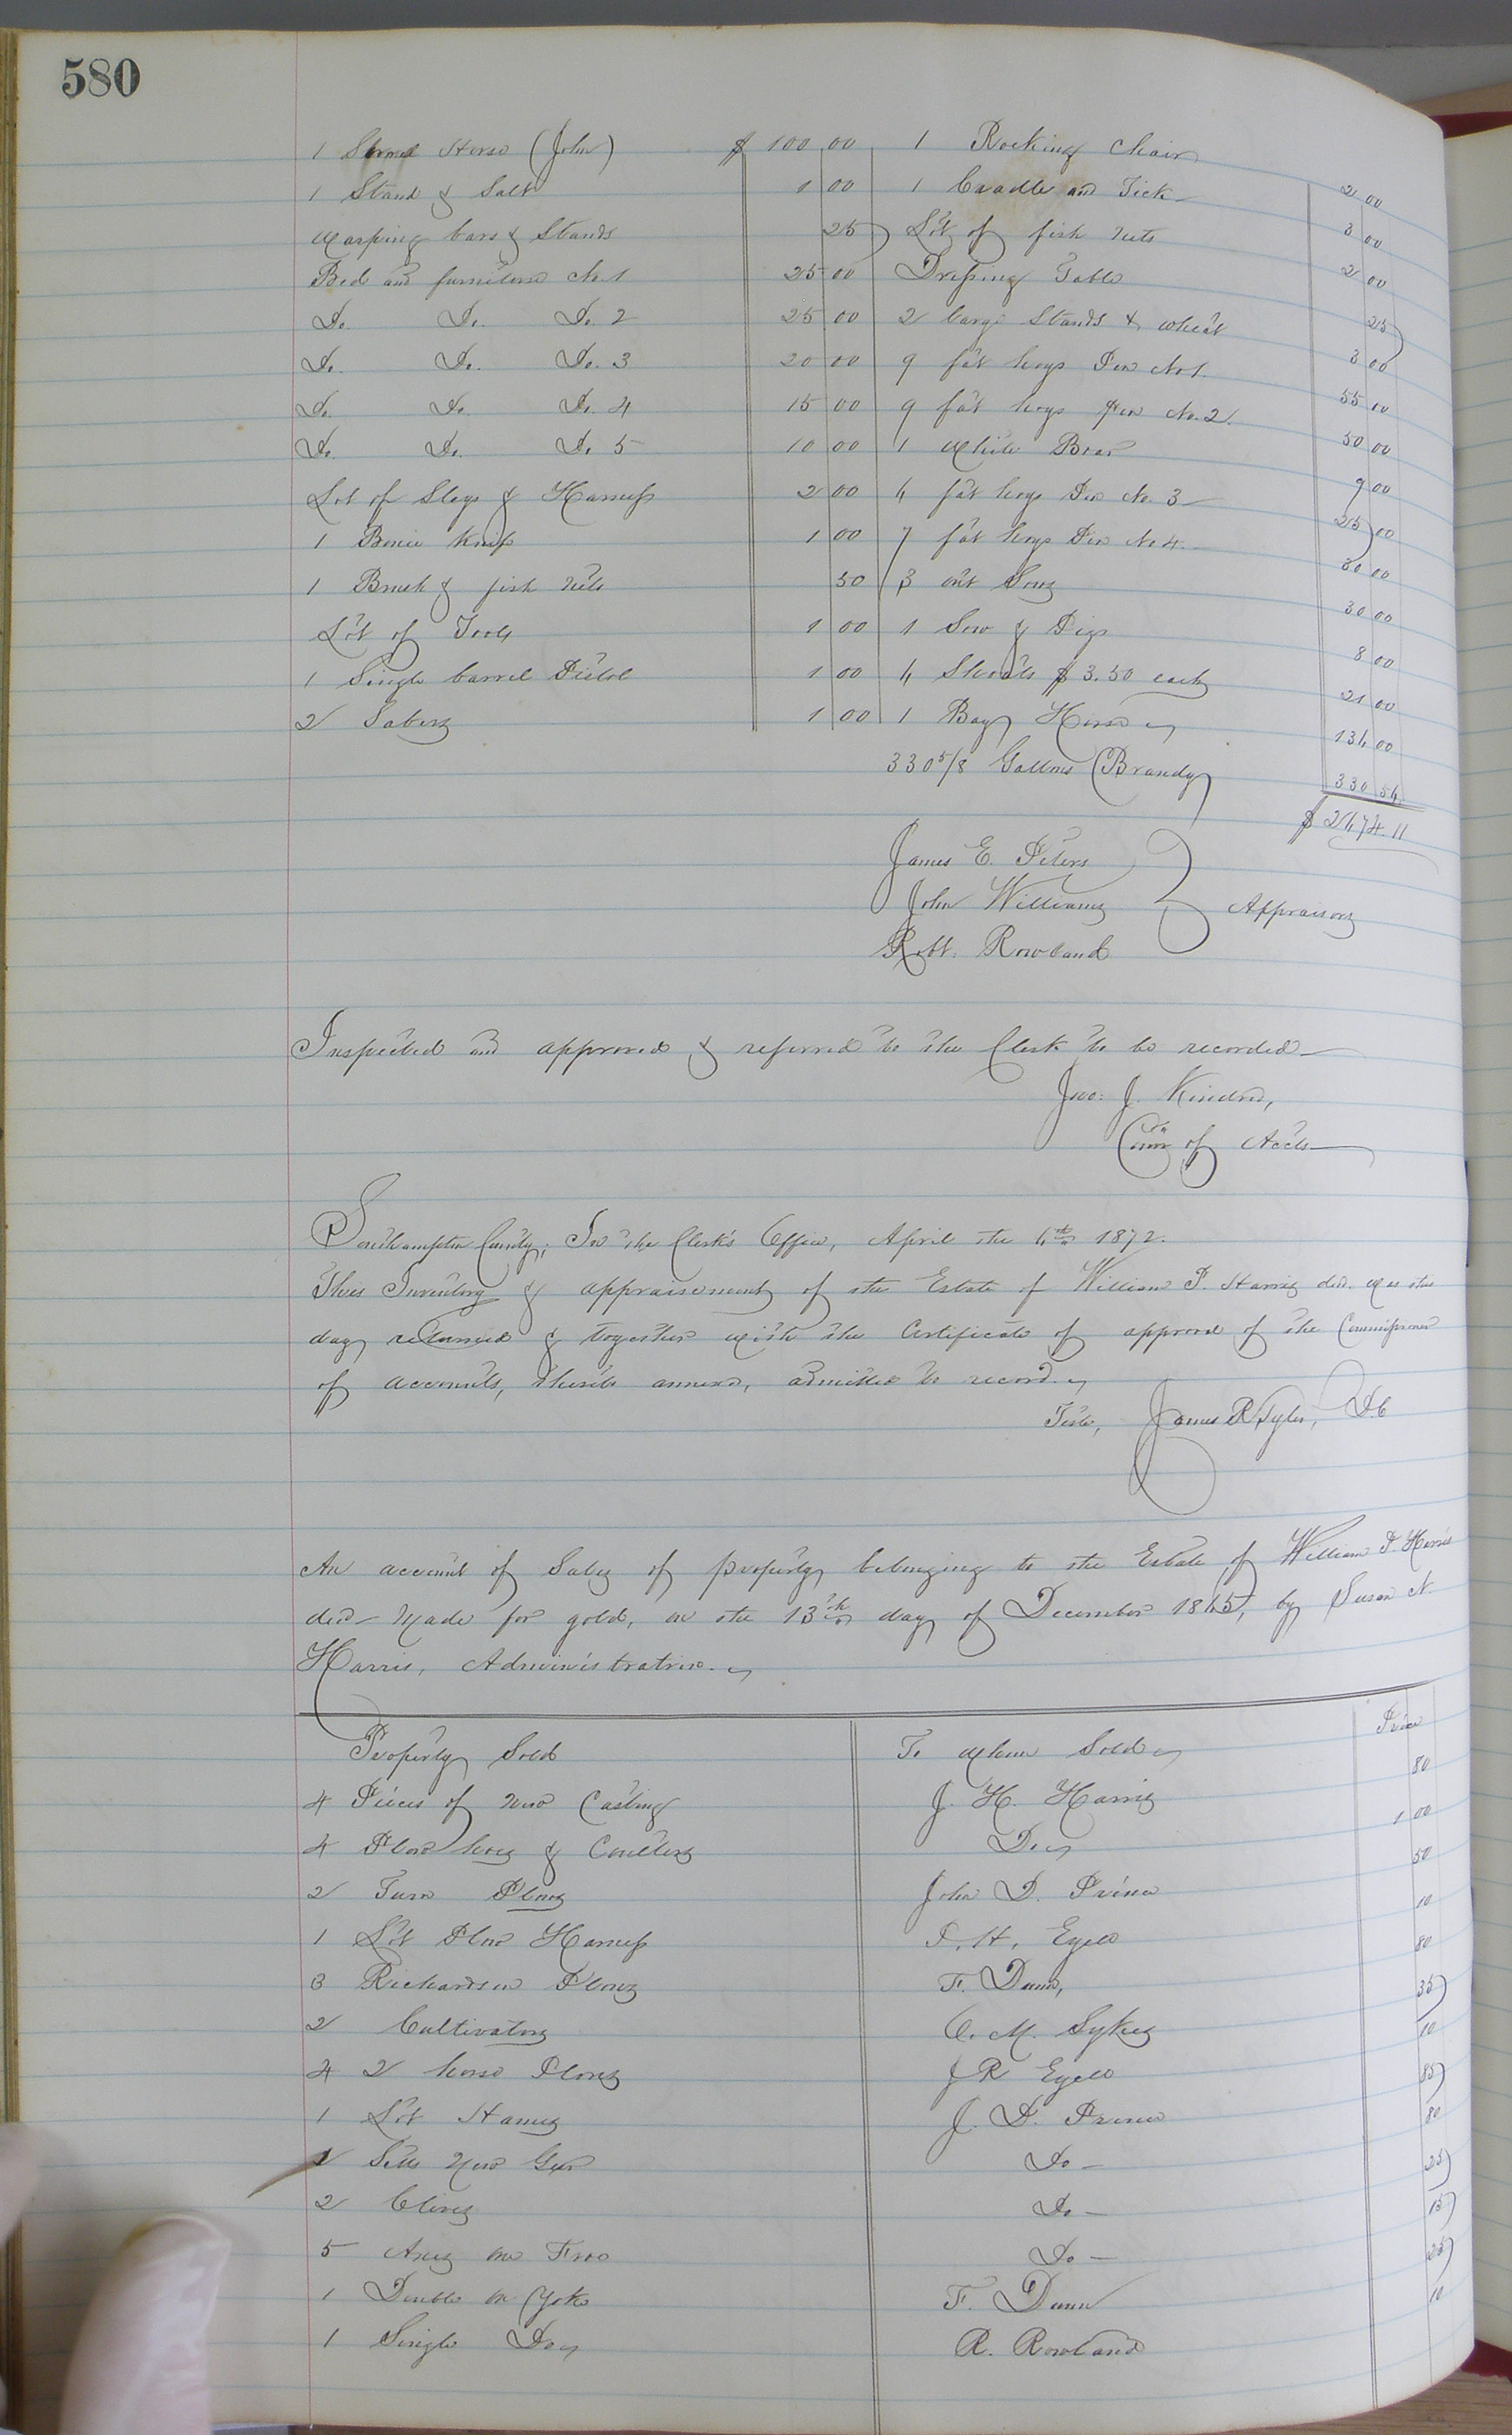 580
1 Sorrel Horse (John) $ 100 00
1 Stand & Salt 1 00
Warping bars & Stands 25
Bed and furniture No. 1 25 00
Do. Do. Do. 2 25 00
Do. Do. Do. 3 20 00
Do. Do. Do. 4 15 00
Do. Do. Do. 5 10 00
Lot of Slays & Harness 2 00
1 Bowie Knife 1 00
1 Brush & fish nets 50
Lot of Tools 1 00
1 Single barrel Pistol 1 00
2 Sabers 1 00
1 Rocking Chair 2 00
1 Cradle and Tick 3 00
Lot of fish nets 2 00
Dressing Table 25
2 large Stands & wheat 3 00
9 fat hogs Pen No 1. 55 00
9 fat hogs Pen No. 2. 50 00
1 White Boar 9 00
6 fat hogs Pen No. 3 25 00
7 fat hogs Pen No 4. 30 00
3 out Sows 30 00
1 Sow & Pigs 8 00
6 Shoats $ 3.50 each 21 00
1 Bay Horse 136 00
330 5/8 Gallons Brandy 330 56
$ 2674.11
James E. Peters
John Williams
Robt. Rowland
Appraisors
Inspected and approved & referred to the Clerk to be recorded
Jno: J. Kindred,
Comr of Accts
Southampton County; In the Clerk's Office, April the 6th 1872.
This Inventory & appraisement of the Estate of William P. Harris decd. was this
day returned & together with the Certificate of approval of the Commissioner
of accounts, thereto annexed, admitted to record.
Teste, James R Tyler, D.C
An account of Sales of property belonging to the Estate of William P Harris
decd Made for gold, on the 13th day of December 1865, by Susan N.
Harris, Administratrix.
Property Sold To whom Sold Price
4 Pieces of new Casting J. H. Harris 80
4 Plow hoes & Coulters Do 1 00
2 Turn Plows John D. Prince 50
1 Lot Plow Harness P. H. Ezell 10
3 Richardson Plows F. Dunn, 80
2 Cultivators C. M. Sykes 35
4 2 horse Plows J R Ezell 10
1 Lot Hames J. D. Prince 85
2 Setts new Gear Do 80
2 Clives Do 25
5 Axes one Froe Do 15
1 Double ox Yoke F. Dunn 25
1 Single Do R. Rowland 10